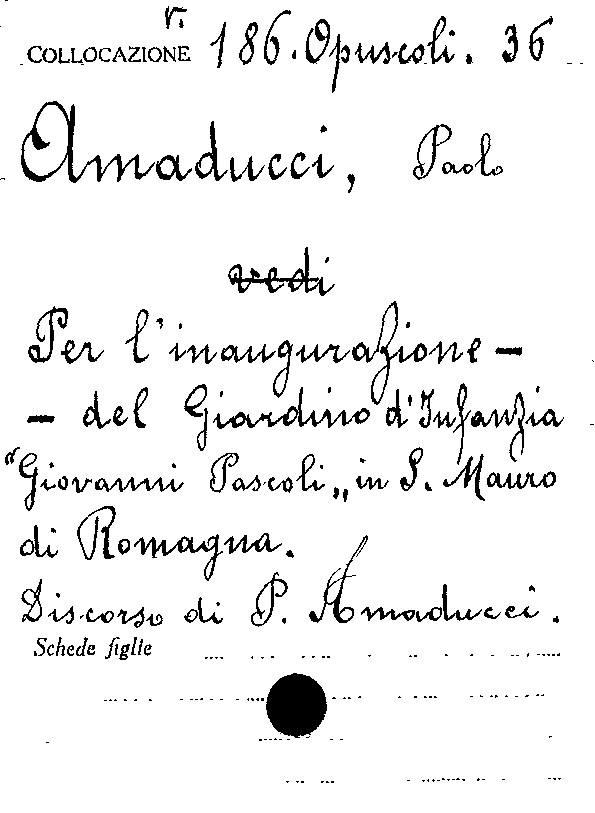 V.
COLLOCAZIONE 186. Opuscoli. 36
Amaducci, Paolo
vedi
Per l'inaugurazione –
– del Giardino d'Infanzia
"Giovanni Pascoli„ in S. Mauro
di Romagna.
Discorso di P. Amaducci.
Schede figlie